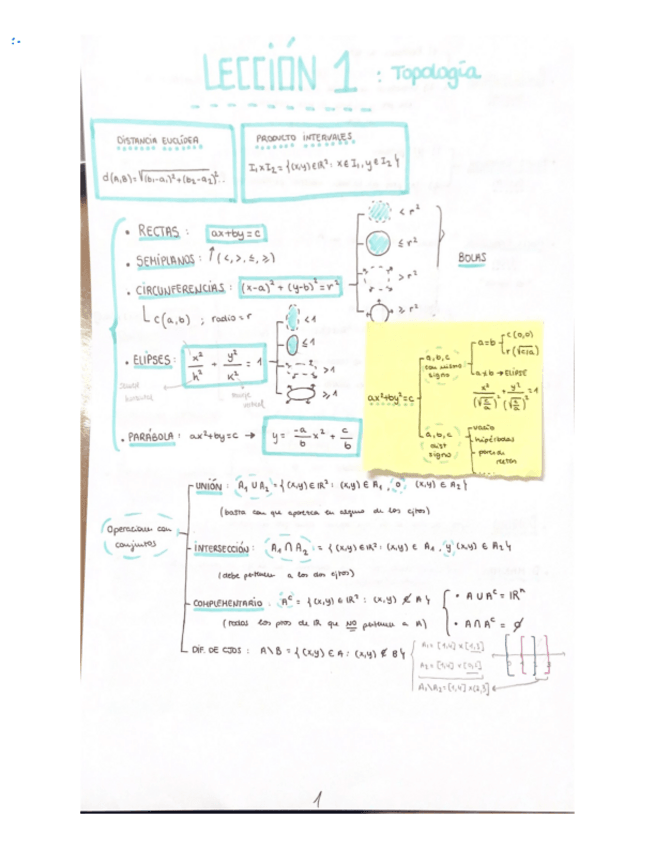 LECCIÓN 1 : Topología
DISTANCIA EUCLÍDEA
d(A,B)=√(b₁-a₁)²+(b₂-a₂)²...
PRODUCTO INTERVALES
I₁×I₂ = {(x,y)∈ℝ² : x∈I₁, y∈I₂}
• RECTAS : ax+by=c
• SEMIPLANOS : ↑ (<, >, ≤, ≥)
• CIRCUNFERENCIAS : (x-a)² + (y-b)² = r²
C(a,b) ; radio=r
< r²
≤ r²
> r²
≥ r²
BOLAS
• ELIPSES : x²/h² + y²/k² = 1
< 1
≤ 1
> 1
≥ 1
• PARÁBOLA : ax²+by=c → y = -a/b x² + c/b
ax²+by²=c
a,b,c con mismo signo
a=b
C(0,0)
r(√c/a)
a≠b → ELIPSE
x²/(√c/a)² + y²/(√c/b)² = 1
a,b,c dist signo
- vacío
- hipérbolas
- par de rectas
Operaciones con conjuntos
UNIÓN : A₁ ∪ A₂ = {(x,y)∈ℝ² : (x,y)∈A₁ o (x,y)∈A₂}
(basta con que aparezca en alguno de los cjtos)
INTERSECCIÓN : A₁ ∩ A₂ = {(x,y)∈ℝ² : (x,y)∈A₁, y (x,y)∈A₂}
(debe pertenecer a los dos cjtos)
COMPLEMENTARIO : Aᶜ = {(x,y)∈ℝ² : (x,y)∉A}
(todos los ptos de ℝ que NO pertenece a A)
• A∪Aᶜ = ℝⁿ
• A∩Aᶜ = ∅
DIF. DE CJOS : A\B = {(x,y)∈A : (x,y)∉B}
A₁ = [1,4] x [1,3]
A₂ = [1,4] x [0,2]
A₁\A₂ = [1,4] x (2,3]
1